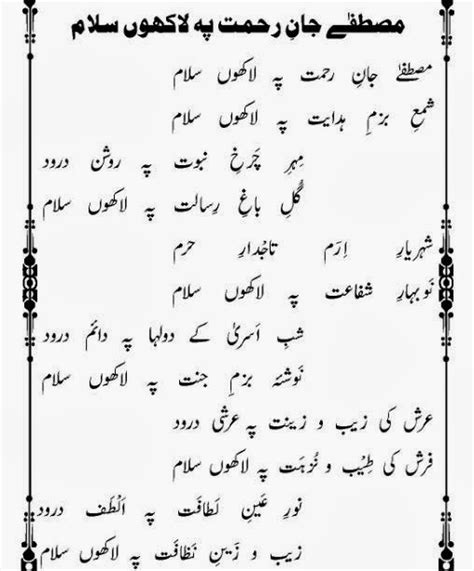 مصطفےٰ جانِ رحمت پہ لاکھوں سلام
مصطفےٰ جانِ رحمت پہ لاکھوں سلام
شمعِ بزمِ ہدایت پہ لاکھوں سلام
مِہرِ چَرخِ نبوت پہ روشن درود
گُلِ باغِ رِسالت پہ لاکھوں سلام
شہریارِ اِرَم تاجْدارِ حرم
نَوبہارِ شفاعت پہ لاکھوں سلام
شبِ اَسریٰ کے دولہا پہ دائم درود
نَوشۂ بزمِ جنت پہ لاکھوں سلام
عرش کی زیب و زینت پہ عرشی درود
فرش کی طِیْب و نُزہَت پہ لاکھوں سلام
نورِ عَینِ لَطافَت پہ اَلْطَف درود
زیب و زَینِ نَظافَت پہ لاکھوں سلام